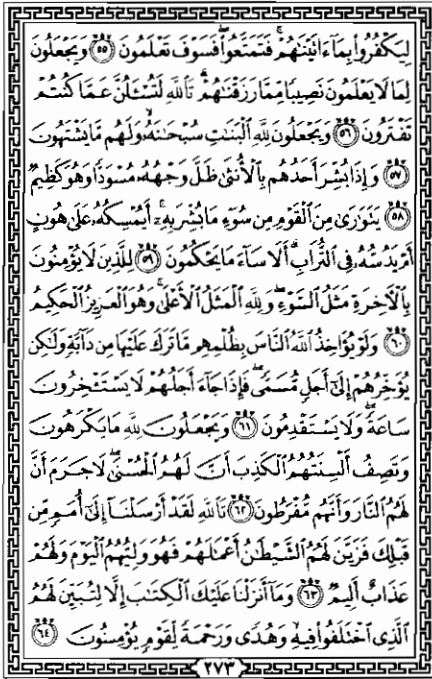 لِيَكْفُرُوا۟ بِمَآ ءَاتَيْنَـٰهُمْ ۚ فَتَمَتَّعُوا۟ ۖ فَسَوْفَ تَعْلَمُونَ ٥٥ وَيَجْعَلُونَ
لِمَا لَا يَعْلَمُونَ نَصِيبًا مِّمَّا رَزَقْنَـٰهُمْ ۗ تَٱللَّهِ لَتُسْـَٔلُنَّ عَمَّا كُنتُمْ
تَفْتَرُونَ ٥٦ وَيَجْعَلُونَ لِلَّهِ ٱلْبَنَـٰتِ سُبْحَـٰنَهُۥ ۙ وَلَهُم مَّا يَشْتَهُونَ
٥٧ وَإِذَا بُشِّرَ أَحَدُهُم بِٱلْأُنثَىٰ ظَلَّ وَجْهُهُۥ مُسْوَدًّا وَهُوَ كَظِيمٌ
٥٨ يَتَوَٰرَىٰ مِنَ ٱلْقَوْمِ مِن سُوٓءِ مَا بُشِّرَ بِهِۦٓ ۚ أَيُمْسِكُهُۥ عَلَىٰ هُونٍ
أَمْ يَدُسُّهُۥ فِى ٱلتُّرَابِ ۗ أَلَا سَآءَ مَا يَحْكُمُونَ ٥٩ لِلَّذِينَ لَا يُؤْمِنُونَ
بِٱلْـَٔاخِرَةِ مَثَلُ ٱلسَّوْءِ ۖ وَلِلَّهِ ٱلْمَثَلُ ٱلْأَعْلَىٰ ۚ وَهُوَ ٱلْعَزِيزُ ٱلْحَكِيمُ
٦٠ وَلَوْ يُؤَاخِذُ ٱللَّهُ ٱلنَّاسَ بِظُلْمِهِم مَّا تَرَكَ عَلَيْهَا مِن دَآبَّةٍ وَلَـٰكِن
يُؤَخِّرُهُمْ إِلَىٰٓ أَجَلٍ مُّسَمًّى ۖ فَإِذَا جَآءَ أَجَلُهُمْ لَا يَسْتَـْٔخِرُونَ
سَاعَةً ۖ وَلَا يَسْتَقْدِمُونَ ٦١ وَيَجْعَلُونَ لِلَّهِ مَا يَكْرَهُونَ
وَتَصِفُ أَلْسِنَتُهُمُ ٱلْكَذِبَ أَنَّ لَهُمُ ٱلْحُسْنَىٰ ۖ لَا جَرَمَ أَنَّ
لَهُمُ ٱلنَّارَ وَأَنَّهُم مُّفْرَطُونَ ٦٢ تَٱللَّهِ لَقَدْ أَرْسَلْنَآ إِلَىٰٓ أُمَمٍ مِّن
قَبْلِكَ فَزَيَّنَ لَهُمُ ٱلشَّيْطَـٰنُ أَعْمَـٰلَهُمْ فَهُوَ وَلِيُّهُمُ ٱلْيَوْمَ وَلَهُمْ
عَذَابٌ أَلِيمٌ ٦٣ وَمَآ أَنزَلْنَا عَلَيْكَ ٱلْكِتَـٰبَ إِلَّا لِتُبَيِّنَ لَهُمُ
ٱلَّذِى ٱخْتَلَفُوا۟ فِيهِ ۙ وَهُدًى وَرَحْمَةً لِّقَوْمٍ يُؤْمِنُونَ ٦٤
٢٧٣